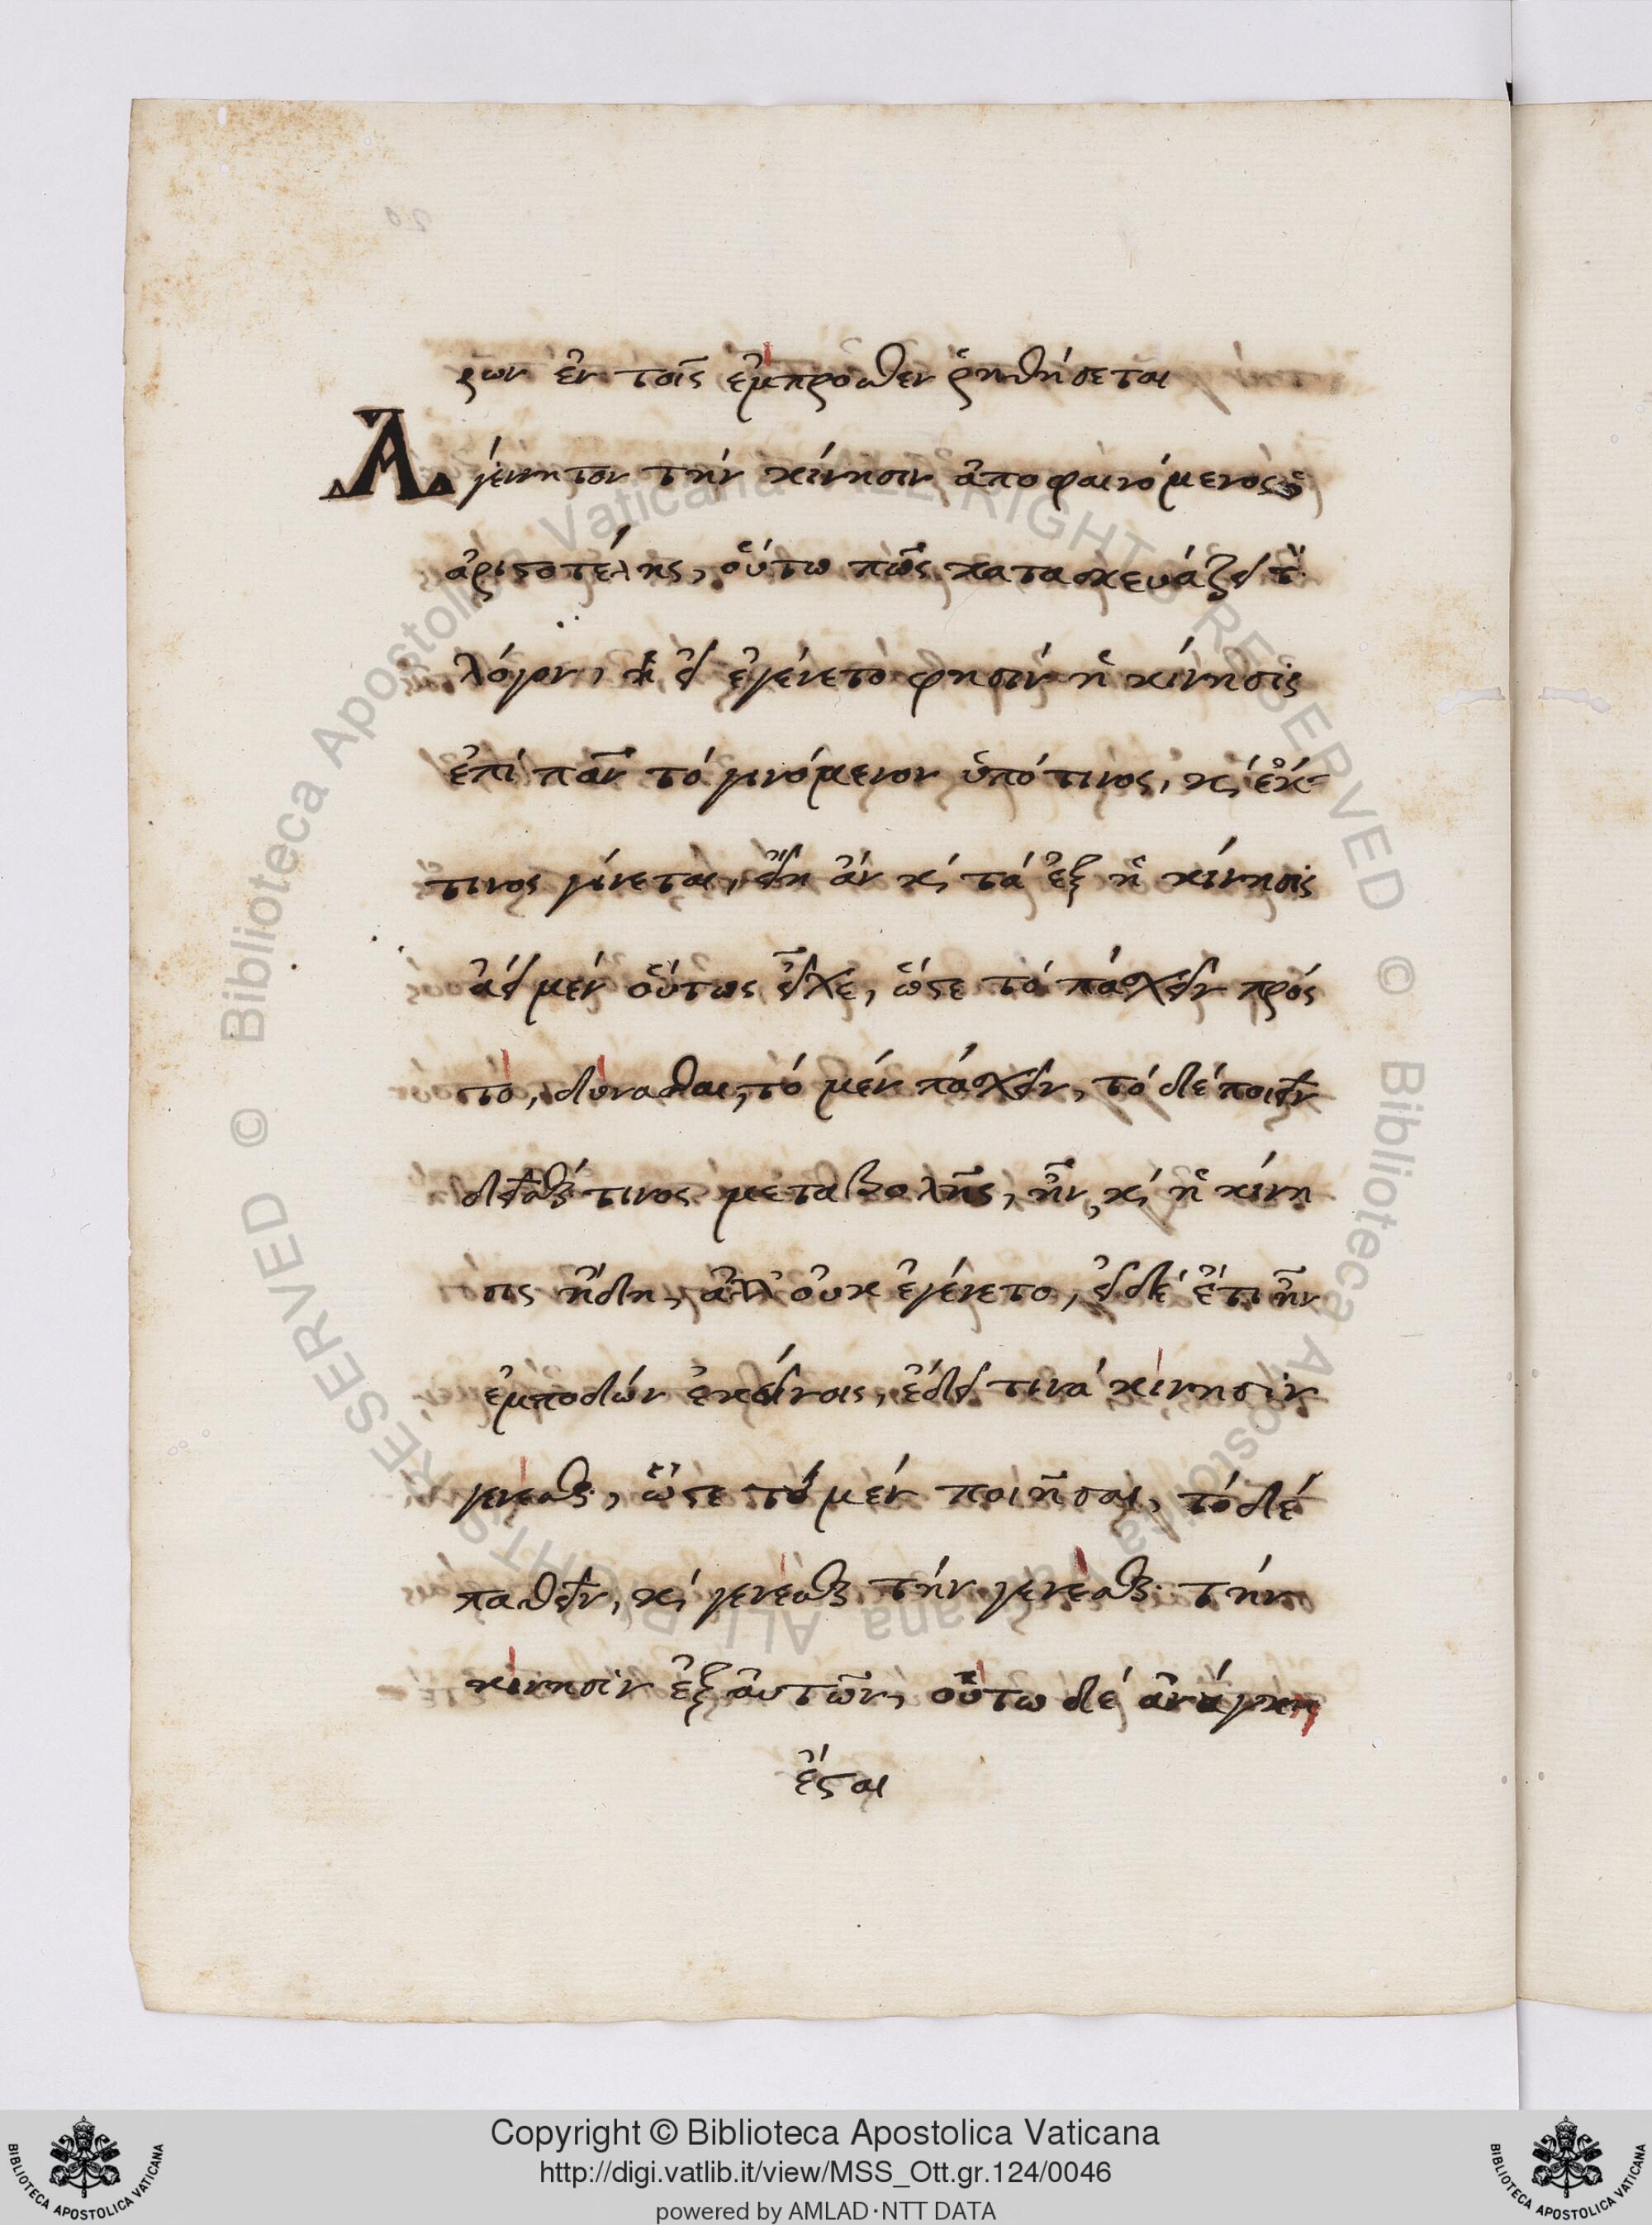 ρων ἐν τοῖς ἔμπροσθεν ῥηθήσεται
Ἀγένητον τὴν κίνησιν ἀποφαινόμενος ὁ
ἀριστοτέλης, οὕτω πῶς κατασκευάζει τὸν
λόγον, εἰ ἐγένετο φησίν ἡ κίνησις
ἐπί πᾶν τό γινόμενον ὑπό τινος, καί ἔκ
τινος γίνεται, εἴη ἂν καί τά ἐξ ἡ κίνησις
ἀεί μέν οὕτως εἶχε, ὥστε τό πάσχειν πρός
τό, δύνασθαι, τό μέν πάσχειν, τό δέ ποιεῖν
τινος μεταβολῆς, ἦν, καί ἡ κίνη
σις ἤδη, ἀλλ' οὐκ ἐγένετο, εἰ δέ ἔτι ἦν
ἐμποδών ἐκείνοις, ἔδει τινά κίνησιν
γενέσθαι, ὥστε τό μέν ποιῆσαι, τό δέ
παθεῖν, καί γενέσθαι τήν γενέσθαι τήν
κίνησιν ἐξ αὐτῶν, οὕτω δέ ἀνάγκη
ἔσται
Copyright © Biblioteca Apostolica Vaticana
http://digi.vatlib.it/view/MSS_Ott.gr.124/0046
powered by AMLAD·NTT DATA
BIBLIOTECA APOSTOLICA VATICANA
BIBLIOTECA APOSTOLICA VATICANA